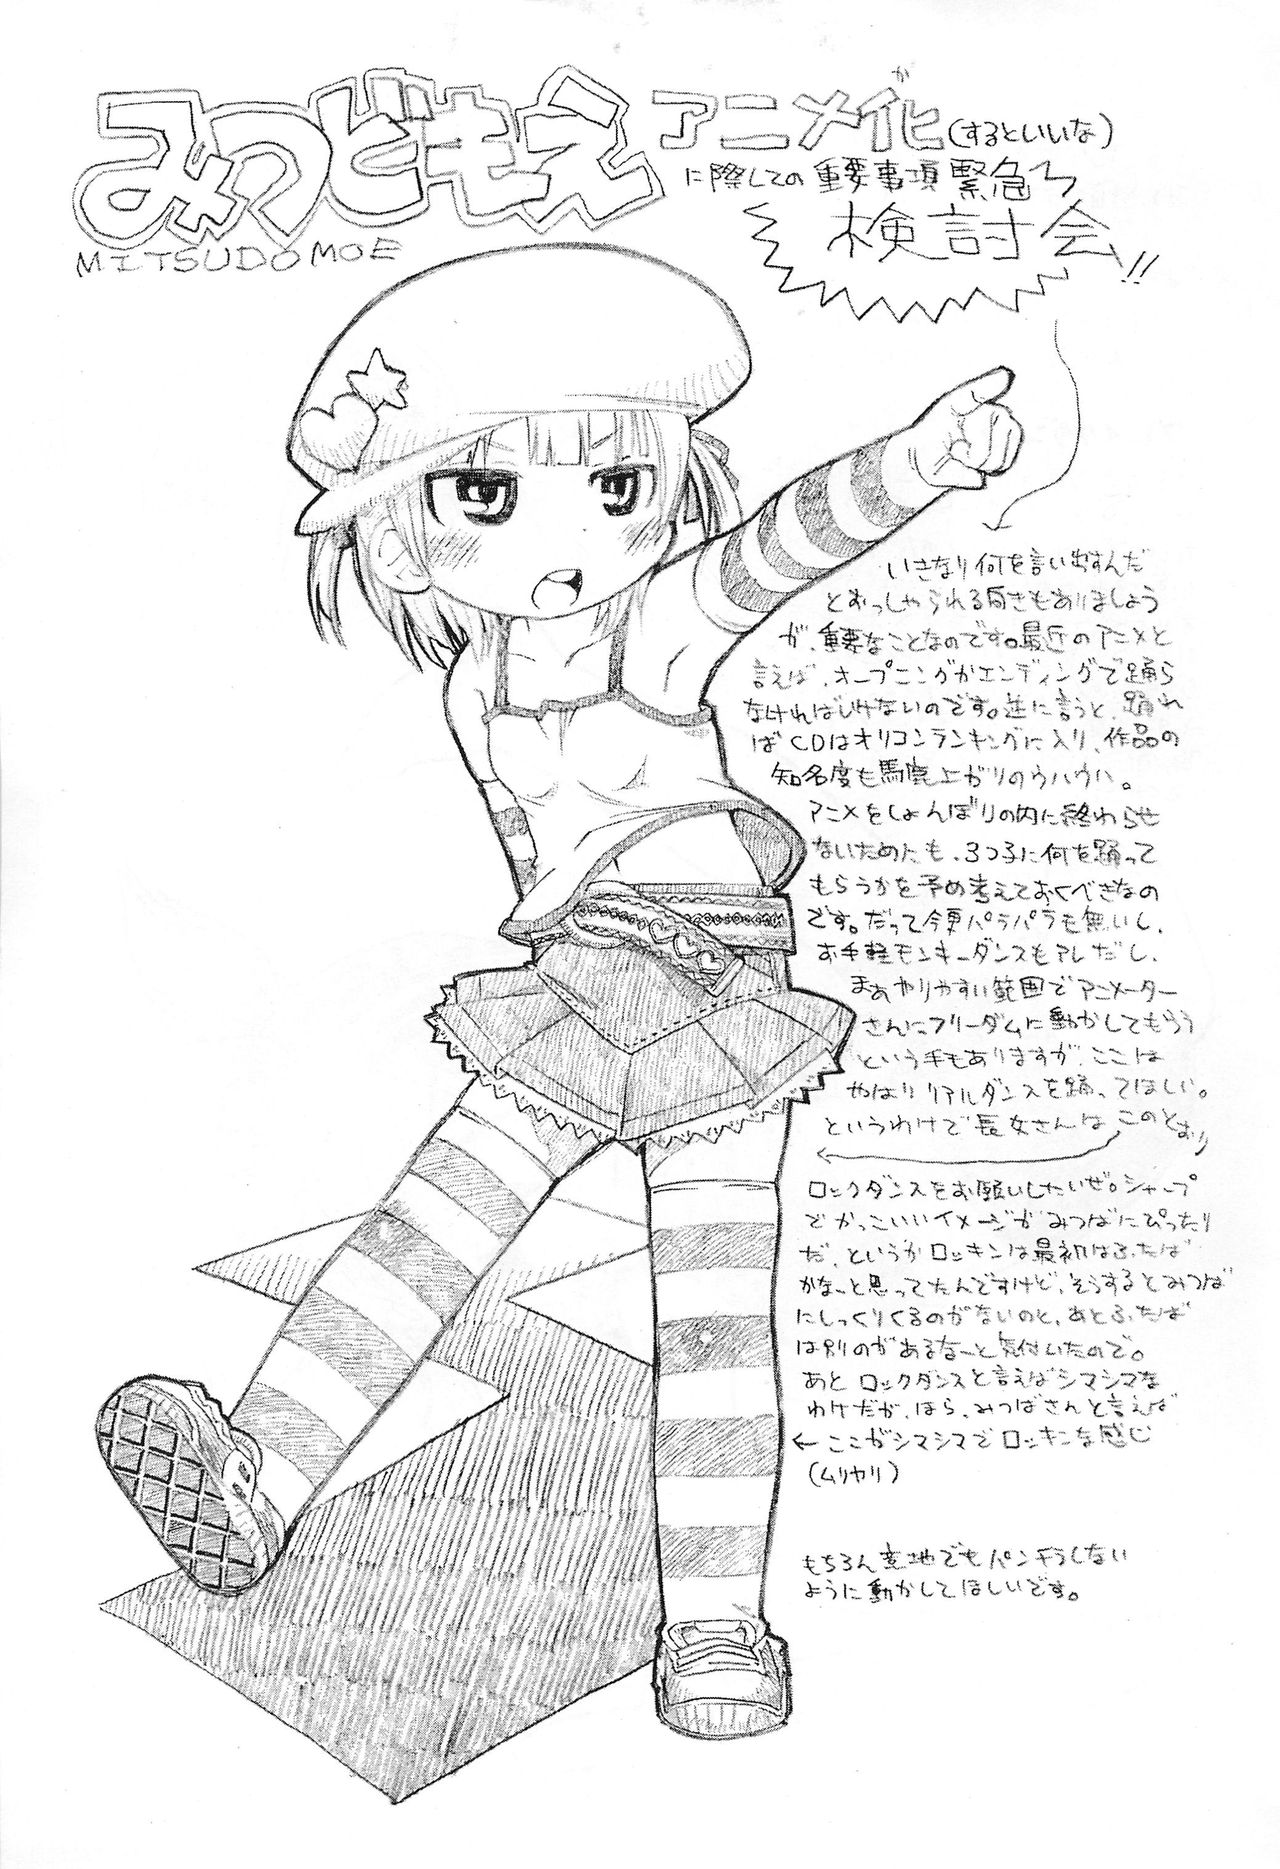 みつどもえ
MITSUDOMOE
アニメ化(するといいな)
か
に際しての重要事項緊急
検討会!!
いきなり何を言い出すんだ
とおっしゃられる向きもありましょう
が、重要なことなのです。最近のアニメと
言えば、オープニングかエンディングで踊ら
なければいけないのです。逆に言うと、踊れ
ばCDはオリコンランキングに入り、作品の
知名度も馬鹿上がりのウハウハ。
アニメをしょんぼりの内に終わらせ
ないためにも、3つ子に何を踊って
もらうかを予め考えておくべきなの
です。だって今更パラパラも無いし、
お手軽モンキーダンスもアレだし、
まあやりやすい範囲でアニメーター
さんにフリーダムに動かしてもらう
という手もありますが、ここは
やはりリアルダンスを踊ってほしい。
というわけで長女さんはこのとおり
ロックダンスをお願いしたいぜ。シャープ
でかっこいいイメージがみつばにぴったり
だ、というかロッキンは最初はふたば
かなーと思ってたんですけど、そうするとみつば
にしっくりくるのがないのと、あとふたば
は別のがあるなーと気付いたので。
あとロックダンスと言えばシマシマな
わけだが、ほら、みつばさんと言えば
←ここがシマシマでロッキンな感じ
(ムリヤリ)
もちろん意地でもパンチラしない
ように動かしてほしいです。